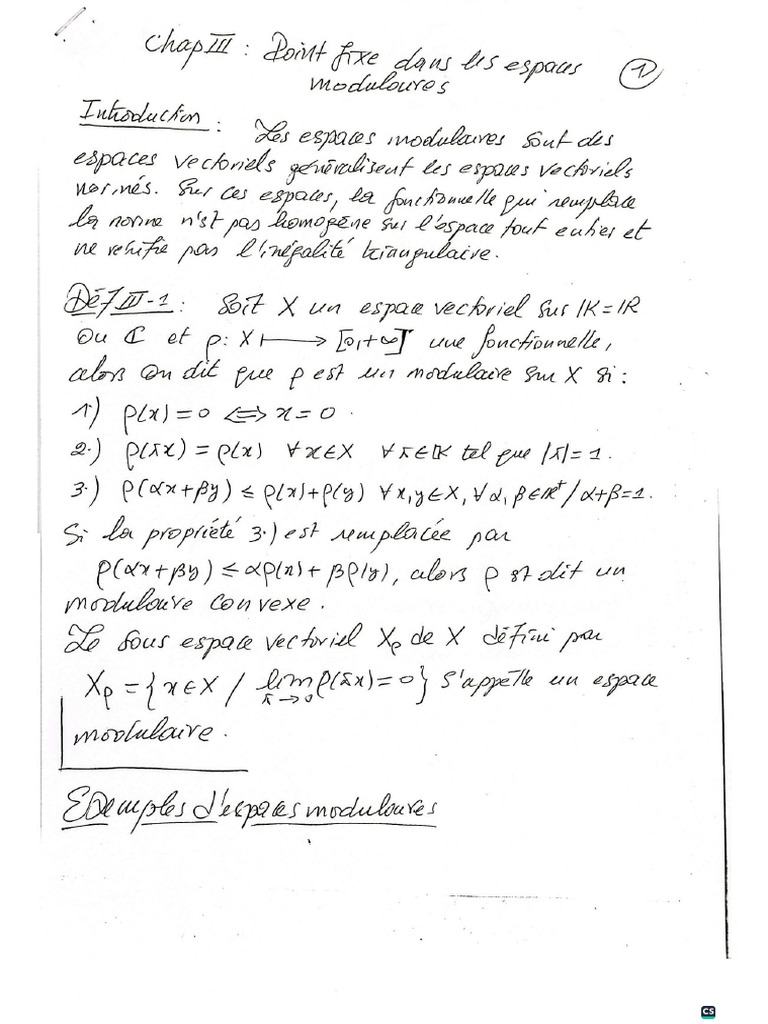 Chap III : Point fixe dans les espaces
modulaires
1
Introduction : Les espaces modulaires sont des
espaces vectoriels généralisent les espaces vectoriels
normés. Sur ces espaces, la fonctionnelle qui remplace
la norme n'est pas homogène sur l'espace tout entier et
ne vérifie pas l'inégalité triangulaire.
Déf III-1 : Soit X un espace vectoriel sur IK = IR
ou ℂ et ρ: X ⟼ [0,+∞] une fonctionnelle,
alors on dit que ρ est un modulaire sur X si :
1.) ρ(x) = 0 ⟺ x = 0.
2.) ρ(λx) = ρ(x) ∀x∈X ∀λ∈IK tel que |λ| = 1.
3.) ρ(αx+βy) ≤ ρ(x)+ρ(y) ∀x,y∈X, ∀α,β∈IR⁺/ α+β=1.
Si la propriété 3.) est remplacée par
ρ(αx+βy) ≤ αρ(x)+βρ(y), alors ρ est dit un
modulaire convexe.
Le sous espace vectoriel Xρ de X défini par
Xρ = { x∈X / lim ρ(λx) = 0 } s'appelle un espace
λ→0
modulaire.
Exemples d'espaces modulaires
CS